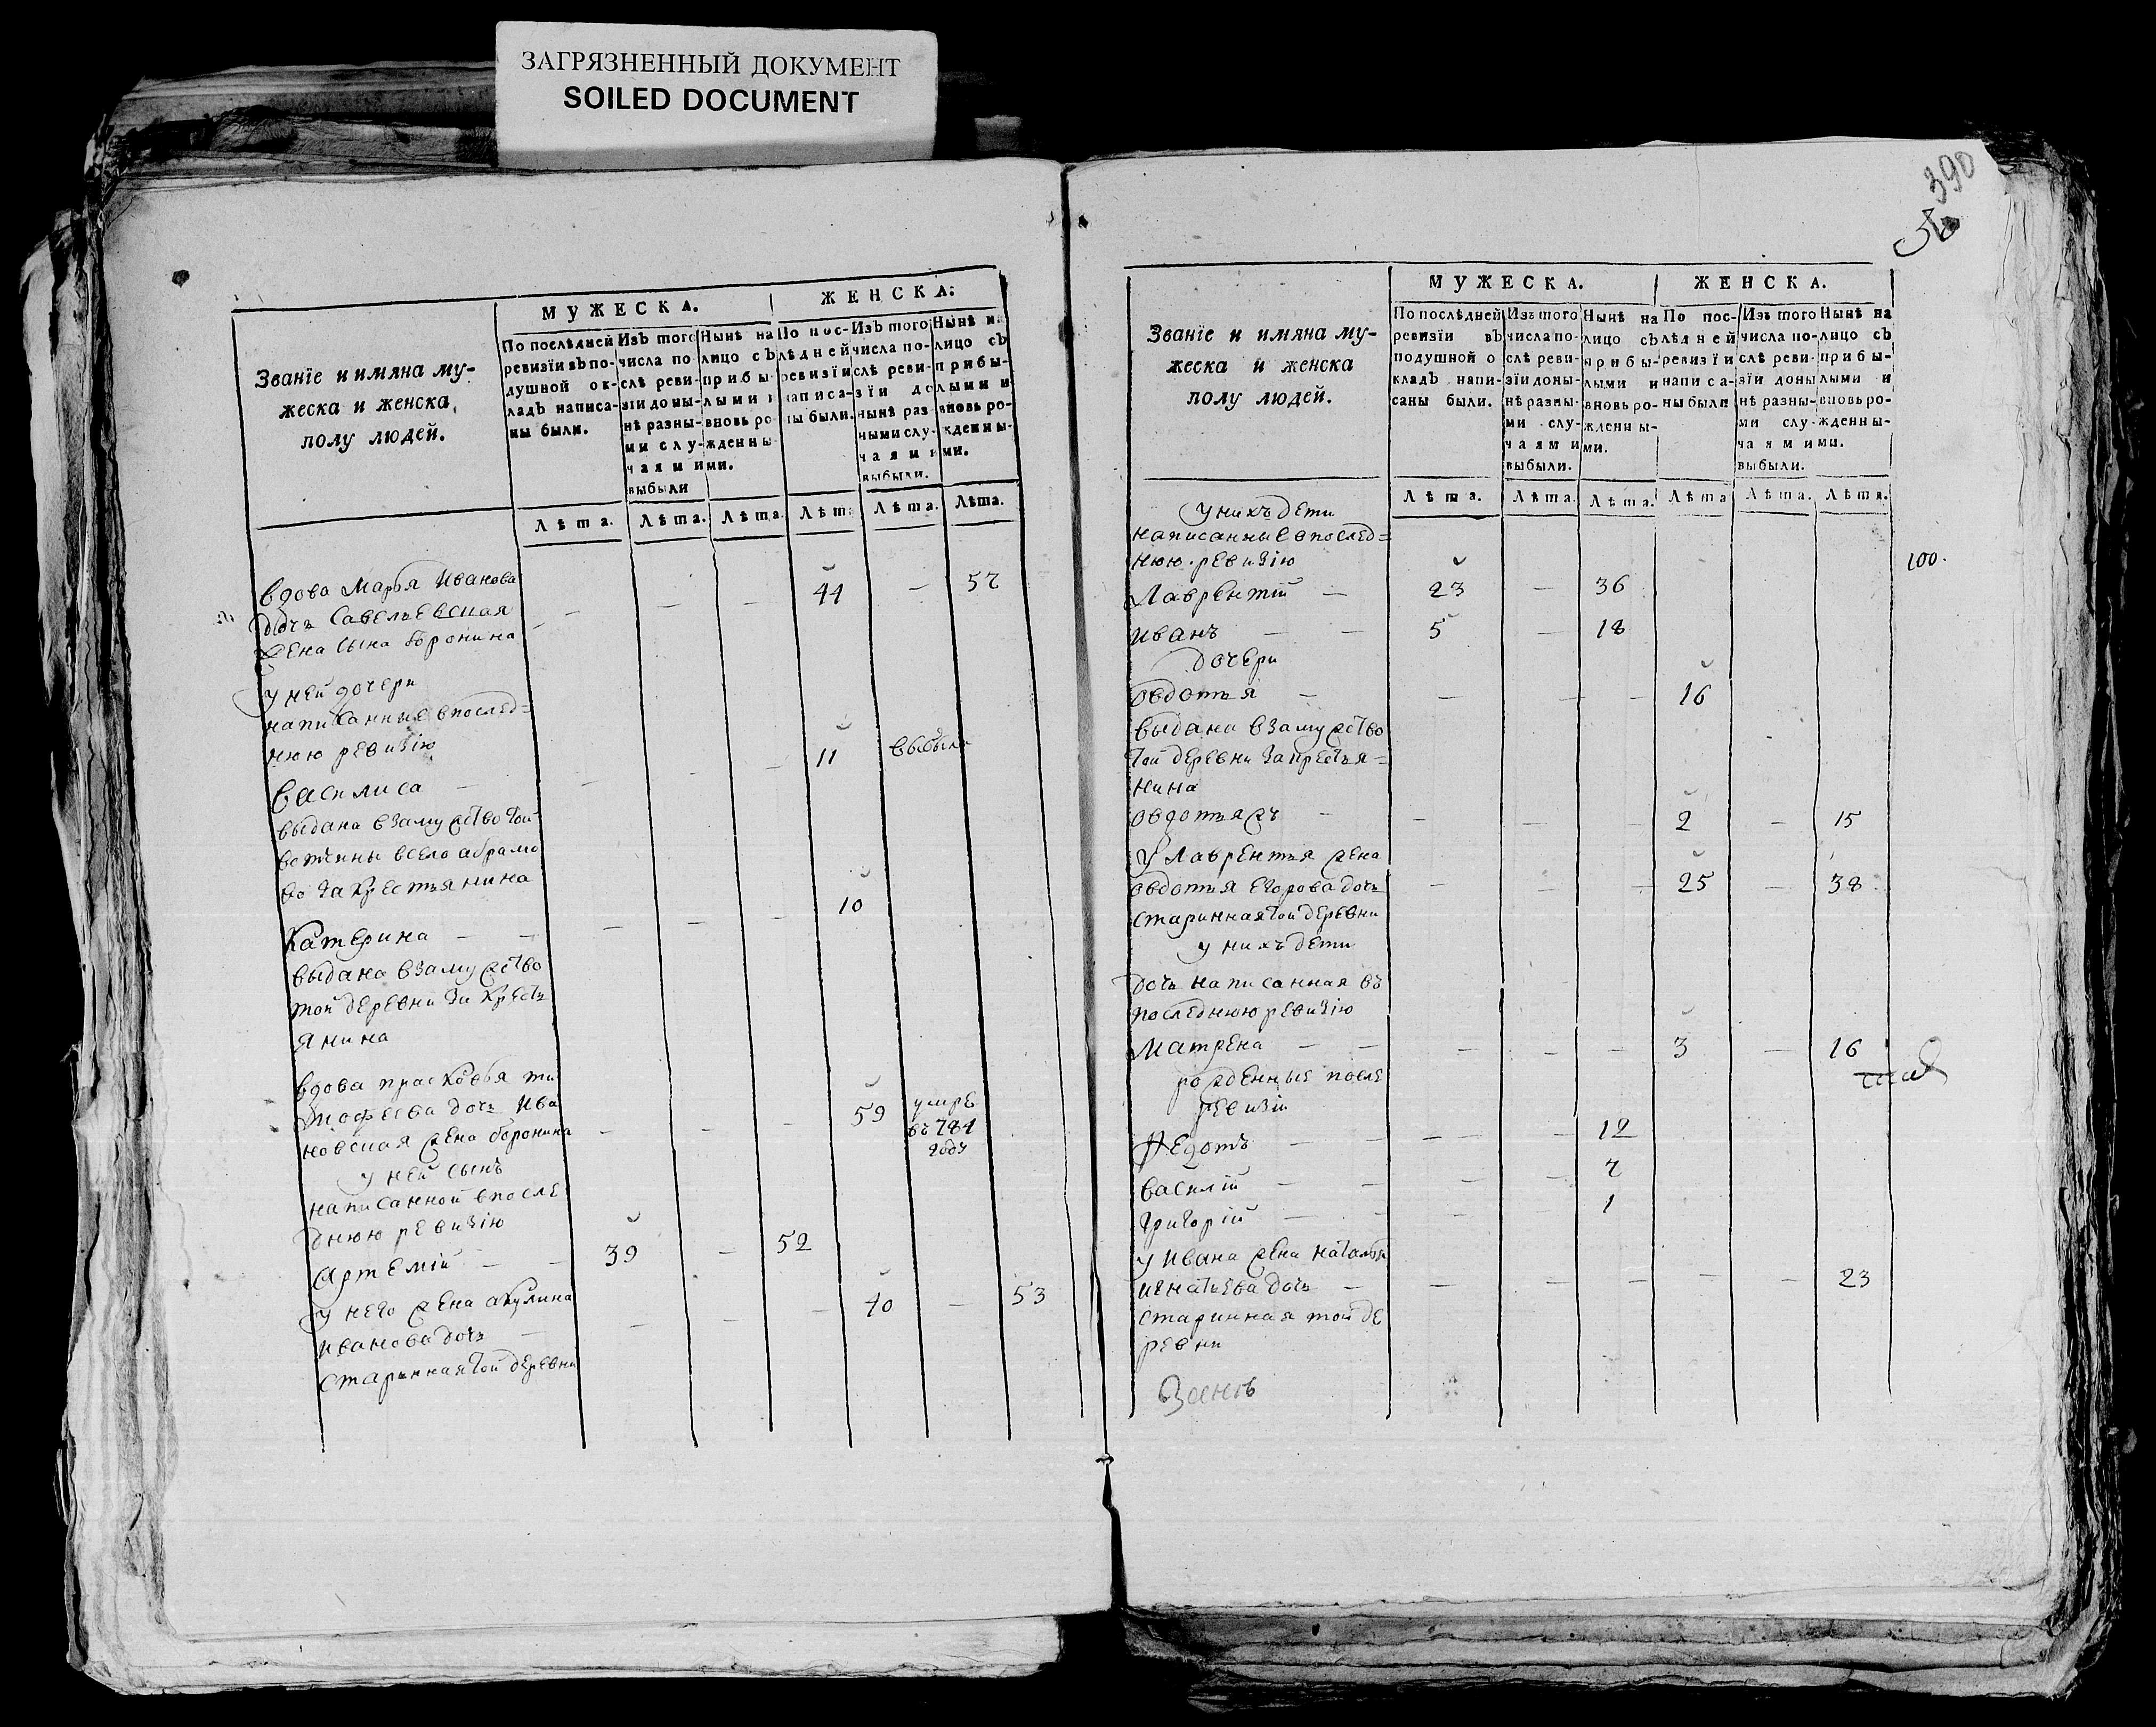 ЗАГРЯЗНЕННЫЙ ДОКУМЕНТ
SOILED DOCUMENT
МУЖЕСКА. ЖЕНСКА:
Званїе и имяна му-
жеска и женска
полу людей.
По послѣдней
ревизїи въ по-
душной ок-
ладъ написа-
ны были.
Изъ того
числа по-
слѣ реви-
зїи до ны-
нѣ разны-
ми слу-
чаями
выбыли
Нынѣ на
лицо съ
прибы-
лыми и
вновь ро-
жденны-
ми.
По пос-
лѣдней
ревизїи
написа-
ны были.
Изъ того
числа по-
слѣ реви-
зїи до
нынѣ раз
ными слу-
чаями
выбыли.
Нынѣ на
лицо съ
прибы-
лыми и
вновь ро-
жденны-
ми.
Лѣта. Лѣта. Лѣта. Лѣта. Лѣта. Лѣта.
вдова Марья Иванова
дочь Савельевская — — — 44 — 57
жена сына боронина
у ней дочери
написанные в послед=
нюю ревизїю
Василиса — — — — 11 выбыла
выдана в замужство той
вотчины в село абрамо
во за крестьянина
Катерина — — — — — 10
выдана в замужство
той деревни за кресть
янина
вдова прасковья ти
мофеева дочь Ива — — — 59 умре
въ 784
годѣ
новская жена боронина
у ней сынъ
написанной в после
днюю ревизїю
Артемїй — — 39 — 52
у него жена акулина — — — 40 — 53
иванова дочь —
старинная той деревни
390
МУЖЕСКА. ЖЕНСКА.
Званїе и имяна му-
жеска и женска
полу людей.
По послѣдней
ревизїи въ
подушной о
кладъ напи-
саны были.
Изъ того
числа по-
слѣ реви-
зїи до ны-
нѣ разны-
ми слу-
чаями
выбыли.
Нынѣ на
лицо съ
прибы-
лыми и
вновь ро-
жденны-
ми.
По пос-
лѣдней
ревизїи
написа-
ны были
Изъ того
числа по-
слѣ реви-
зїи до ны
нѣ разны-
ми слу-
чаями
выбыли.
Нынѣ на
лицо съ
прибы-
лыми и
вновь ро-
жденны-
ми.
Лѣта. Лѣта. Лѣта. Лѣта Лѣта. Лѣта.
у нихъ дети
написанные в послед=
нюю ревизїю 100.
Лаврентїй — 23 — 36
Иванъ — — 5 — 18
дочери
овдотья — — — — 16
выдана в замужство
той деревни за крестья=
нина
овдотья жъ — — — — 2 — 15
у Лаврентья жена
овдотья Егорова дочь — — — 25 — 38
старинная той деревни
у нихъ дети
дочь написанная въ
последнюю ревизїю
Матрена — — — — — 3 — 16
рожденные после
ревизїи
Федотъ — — — — 12
василїй — — — — 7
григорїй — — — — 1
у Ивана жена наталья
игнатьева дочь — — — — — — 23
старинная той де
ревни